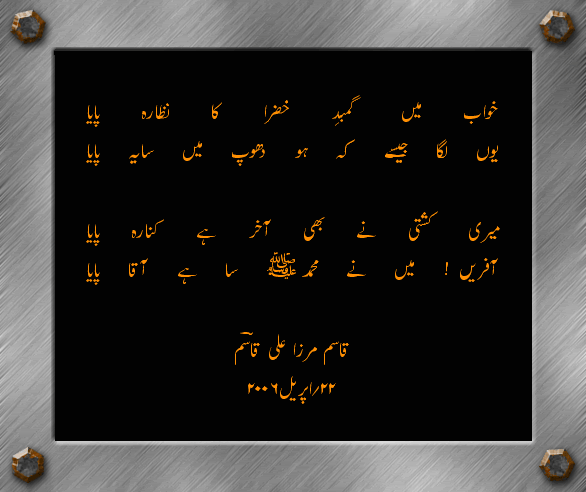 خواب میں گمبدِ خضرا کا نظارہ پایا
یوں لگا جیسے کہ ہو دھوپ میں سایہ پایا
میری کشتی نے بھی آخر ہے کنارہ پایا
آفریں ! میں نے محمد ﷺ سا ہے آقا پایا
قاسم مرزا علی قاسمؔ
۲۲/اپریل۲۰۰۶